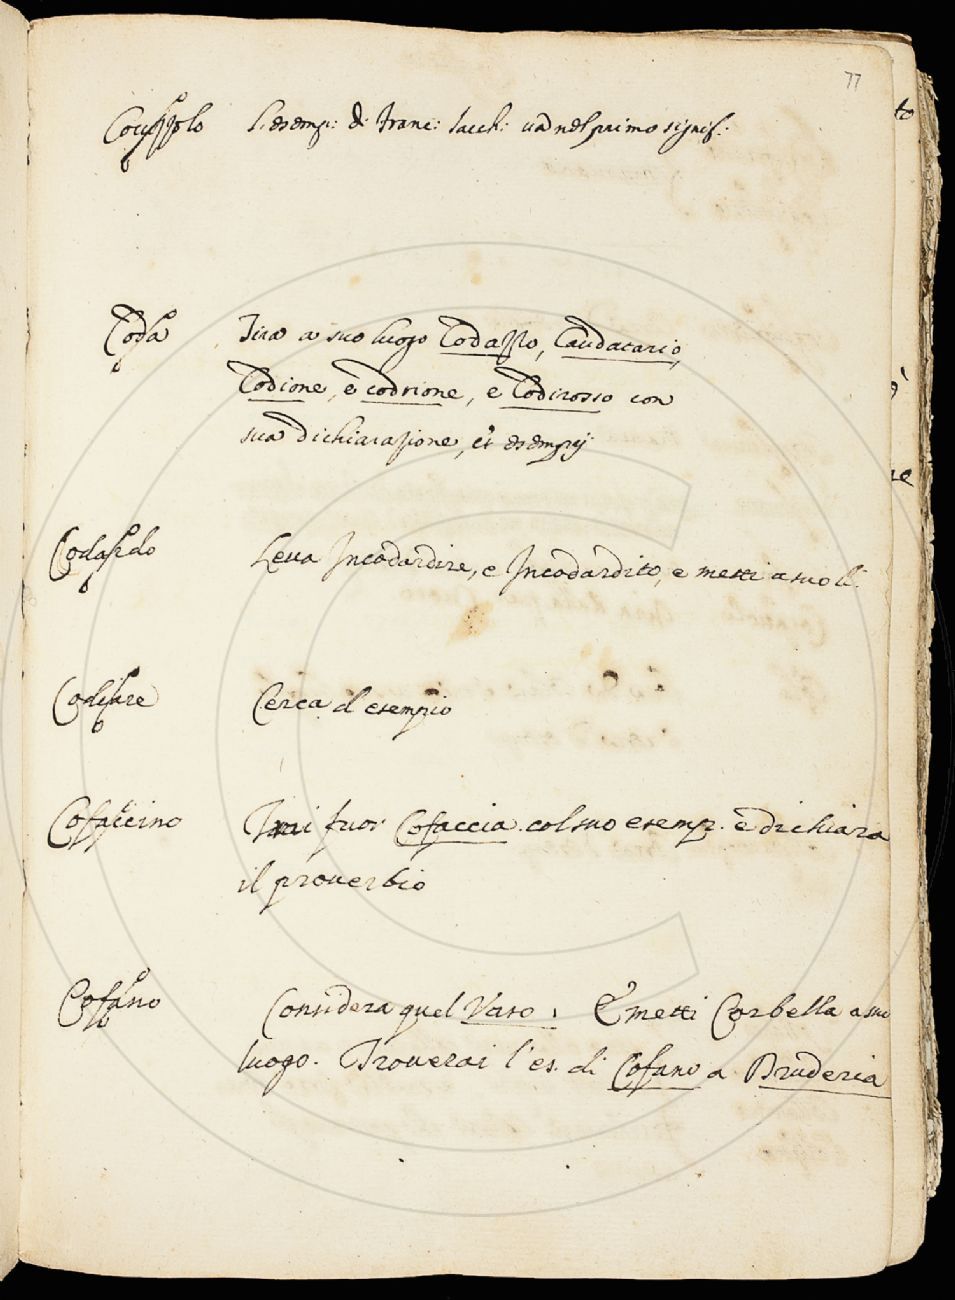 77
Cocuzzolo L'esemp: di Franc: Sacch: va nel primo signif:
Coda Tira a suo luogo Codazzo, Caudatario,
Codione, e codrione, e Codirosso con
sua dichiarazione, et esempij
Codardo Leva Incodardire, e Incodardito, e metti a suo l:
Codiare Cerca d'esempio
Cofaccino Trai fuor Cofaccia col suo esemp. e dichiara
il proverbio
Cofano Considera quel Vaso. E metti Corbella a suo
luogo. Troverai l'es. di Cofano a Bruderia